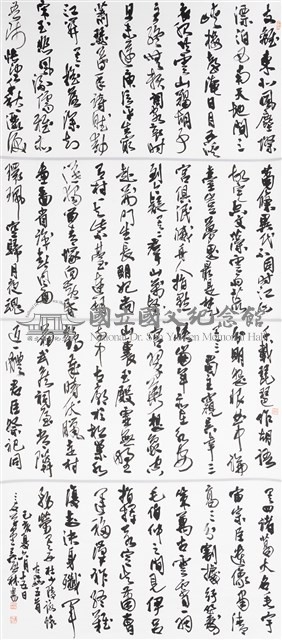 支離東北風塵際
漂泊西南天地間三
峽樓臺淹日月五溪
衣服共雲山羯胡事
主終無賴詞客哀時
且未還庾信平生最
蕭瑟暮年詩賦動
江關搖落深知
宋玉悲風流儒雅亦
吾師悵望千秋一灑淚
蕭條異代不同時江
山故宅空文藻雲雨荒
臺豈夢思最是楚
宮俱泯滅舟人指點
到今疑群山萬壑
赴荊門生長明妃尚
有村一去紫臺連朔
漠獨留青塚向黃昏
畫圖省識春風面
環珮空歸月夜魂
千載琵琶作胡語
分明怨恨曲中論
蜀主窺吳幸三
峽崩年亦在永
安宮翠華想像空
山裏玉殿虛無野
寺中古廟杉松巢水
鶴歲時伏臘走村
翁武侯祠屋常鄰
近一體君臣祭祀同
諸葛大名垂宇
宙宗臣遺像肅清
高三分割據紆籌
策萬古雲霄一羽
毛伯仲之間見伊呂
指揮若定失蕭曹
運移漢祚終難
復志決身殲軍
務勞
杜少陵詠懷
古跡五首
國立國父紀念館
National Dr. Sun Yat-sen Memorial Hall